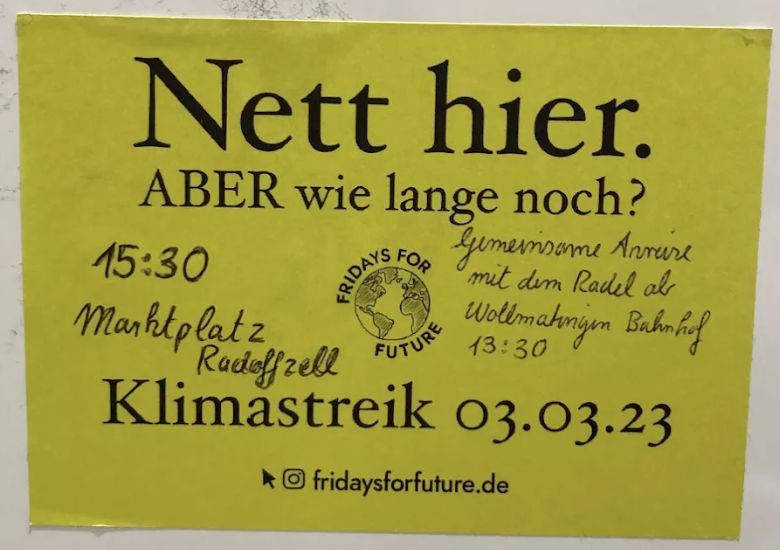 Nett hier.
ABER wie lange noch?
15:30
Marktplatz
Radolfzell
FRIDAYS FOR
FUTURE
Gemeinsame Anreise
mit dem Radel ab
Wollmatingen Bahnhof
13:30
Klimastreik 03.03.23
fridaysforfuture.de